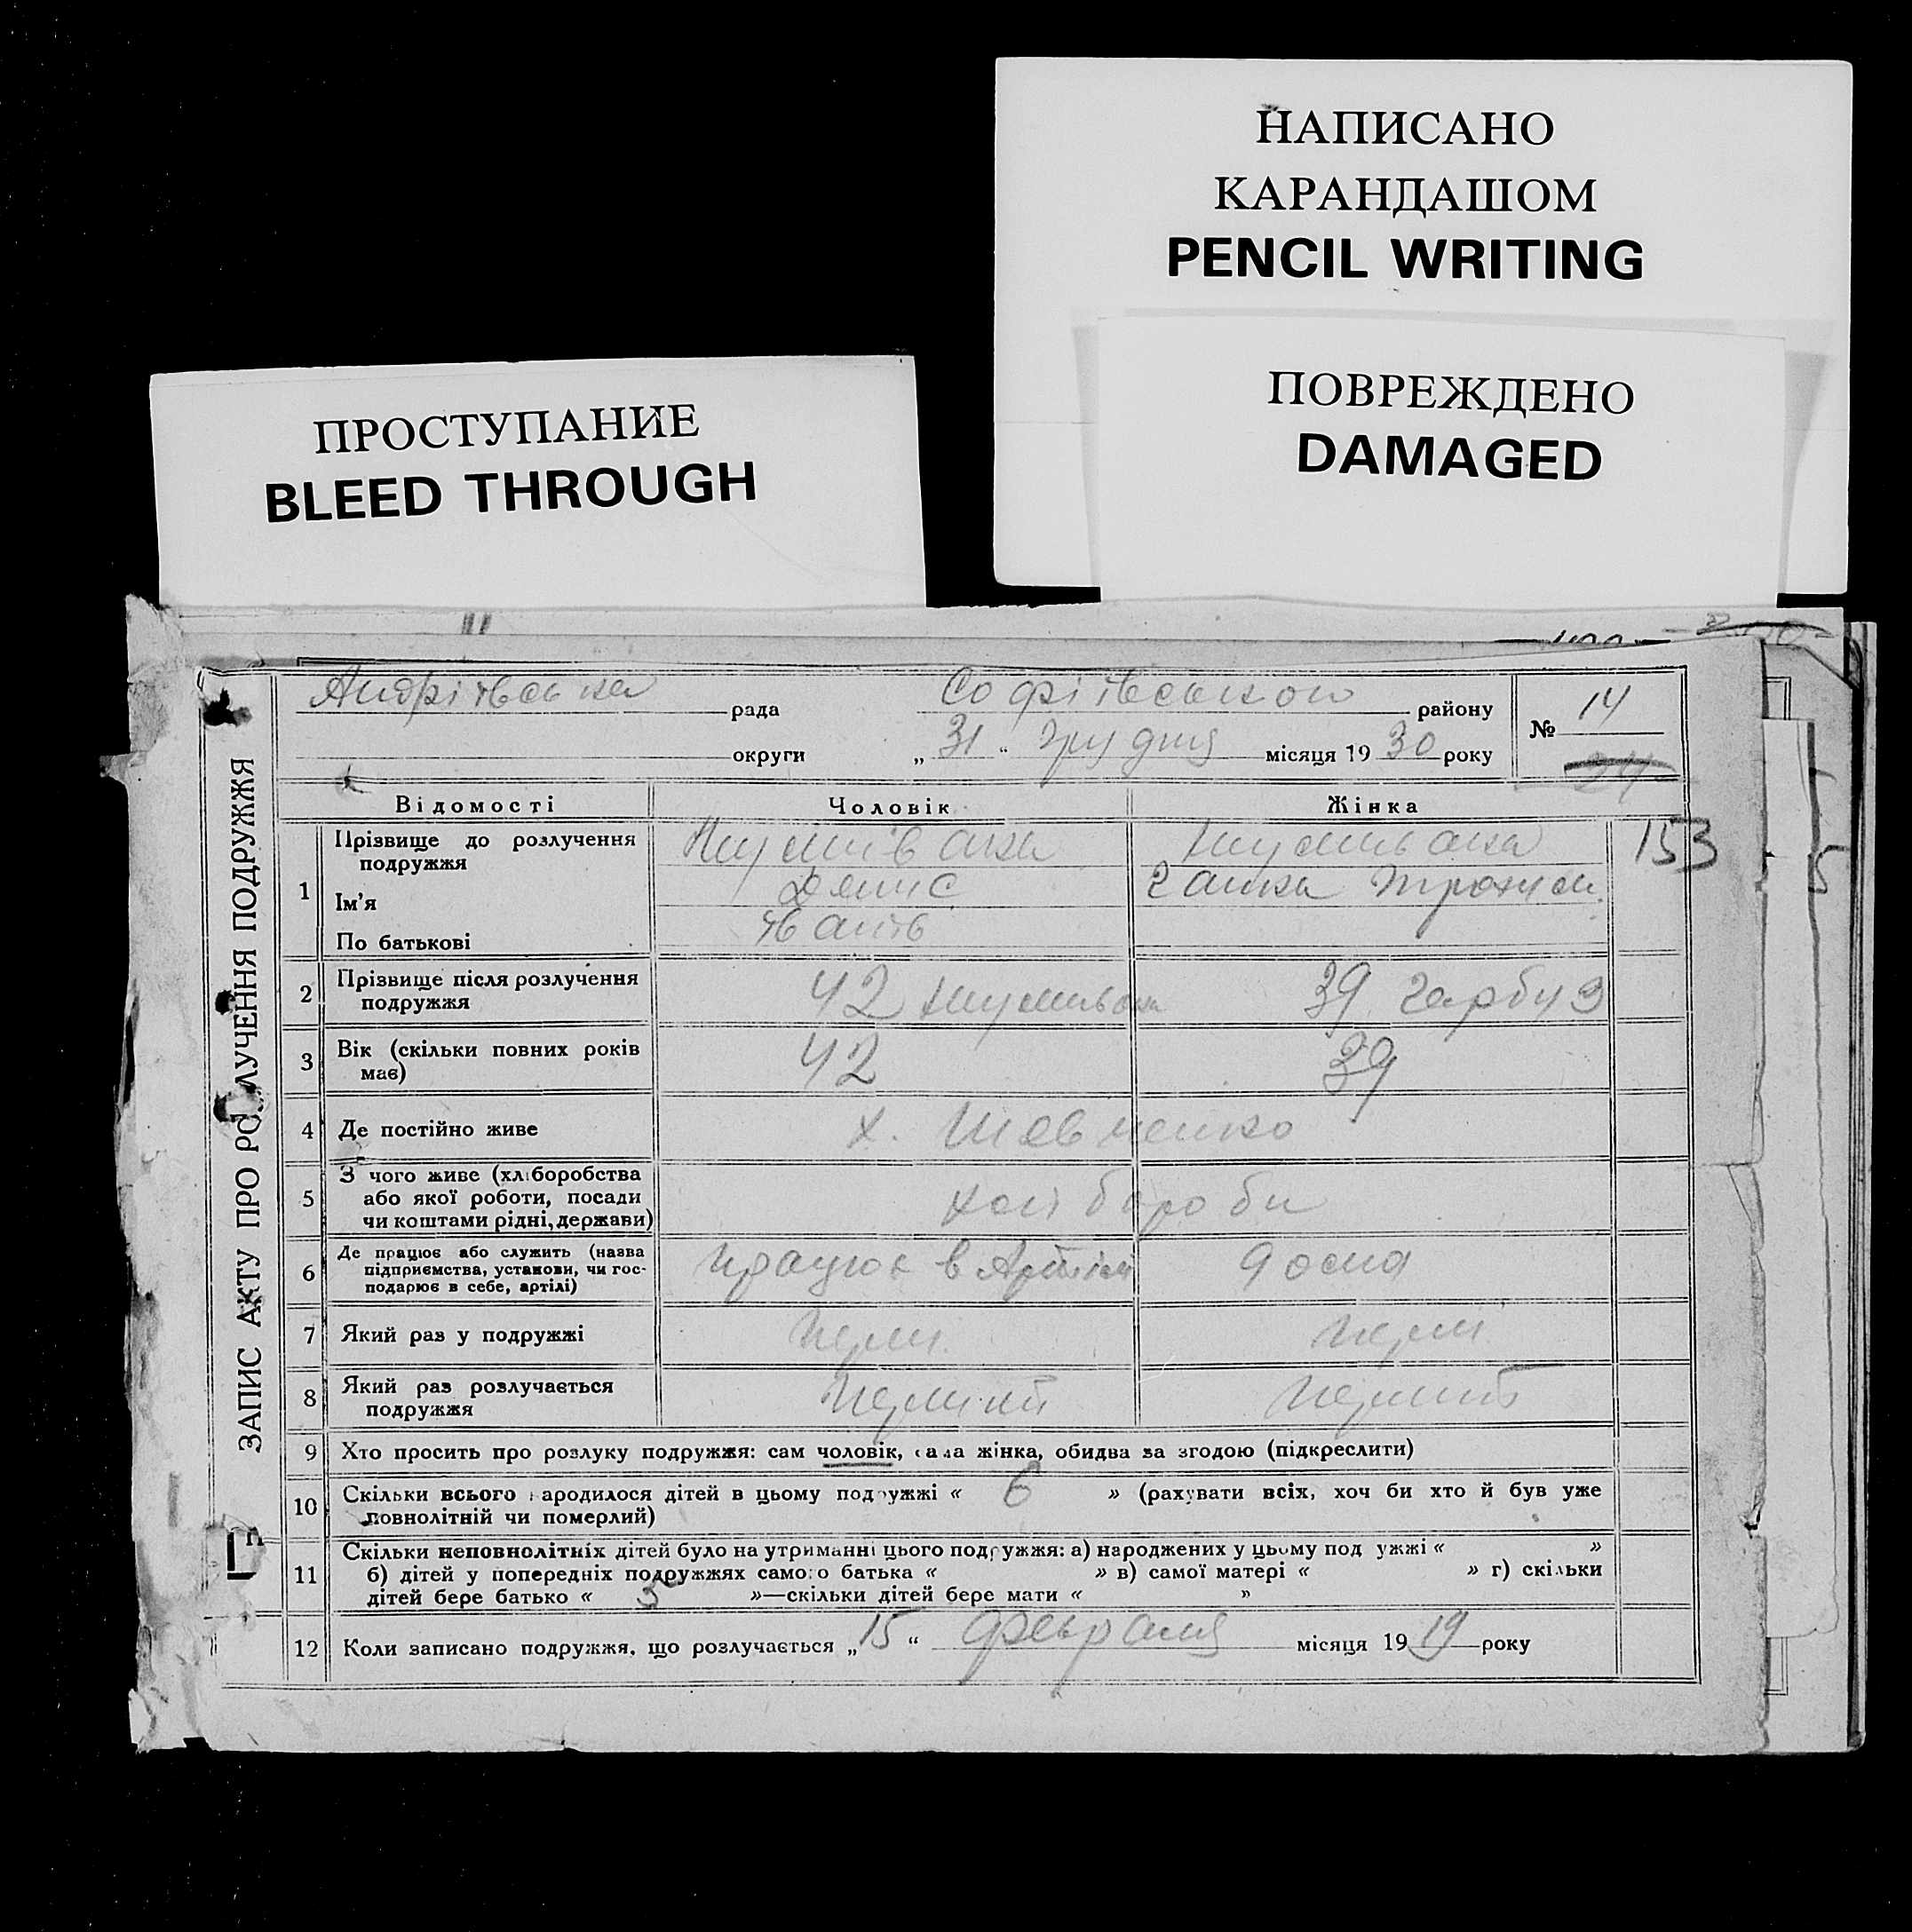 НАПИСАНО
КАРАНДАШОМ
PENCIL WRITING
ПОВРЕЖДЕНО
DAMAGED
ПРОСТУПАНИЕ
BLEED THROUGH
ЗАПИС АКТУ ПРО РО ЛУЧЕННЯ ПОДРУЖЖЯ
Андріївська рада Софіївського району № 14
округи „ 31 " грудня місяця 19 30 року
24
Відомості Чоловік Жінка
1 Прізвище до розлучення подружжя 153
Ім'я Денис Ганка Трохим.
По батькові Іванів
2 Прізвище після розлучення подружжя 42 39 Гарбуз
3 Вік (скільки повних років має) 42 39
4 Де постійно живе х. Шевченко
5 З чого живе (хліборобства або якої роботи, посади чи коштами рідні, держави)
6 Де працює або служить (назва підприємства, установи, чи господарює в себе, артілі) працює в Артілі дома
7 Який раз у подружжі перш. перш
8 Який раз розлучається подружжя перший перший
9 Хто просить про розлуку подружжя: сам чоловік, сама жінка, обидва за згодою (підкреслити)
10 Скільки всього народилося дітей в цьому подружжі « 6 » (рахувати всіх, хоч би хто й був уже
повнолітній чи померлий)
11 Скільки неповнолітніх дітей було на утриманні цього подружжя: а) народжених у цьому под ужжі « »
б) дітей у попередніх подружжях самого батька « » в) самої матері « » г) скільки
дітей бере батько « 3 »—скільки дітей бере мати « »
12 Коли записано подружжя, що розлучається „ 15 " февраля місяця 19 19 року